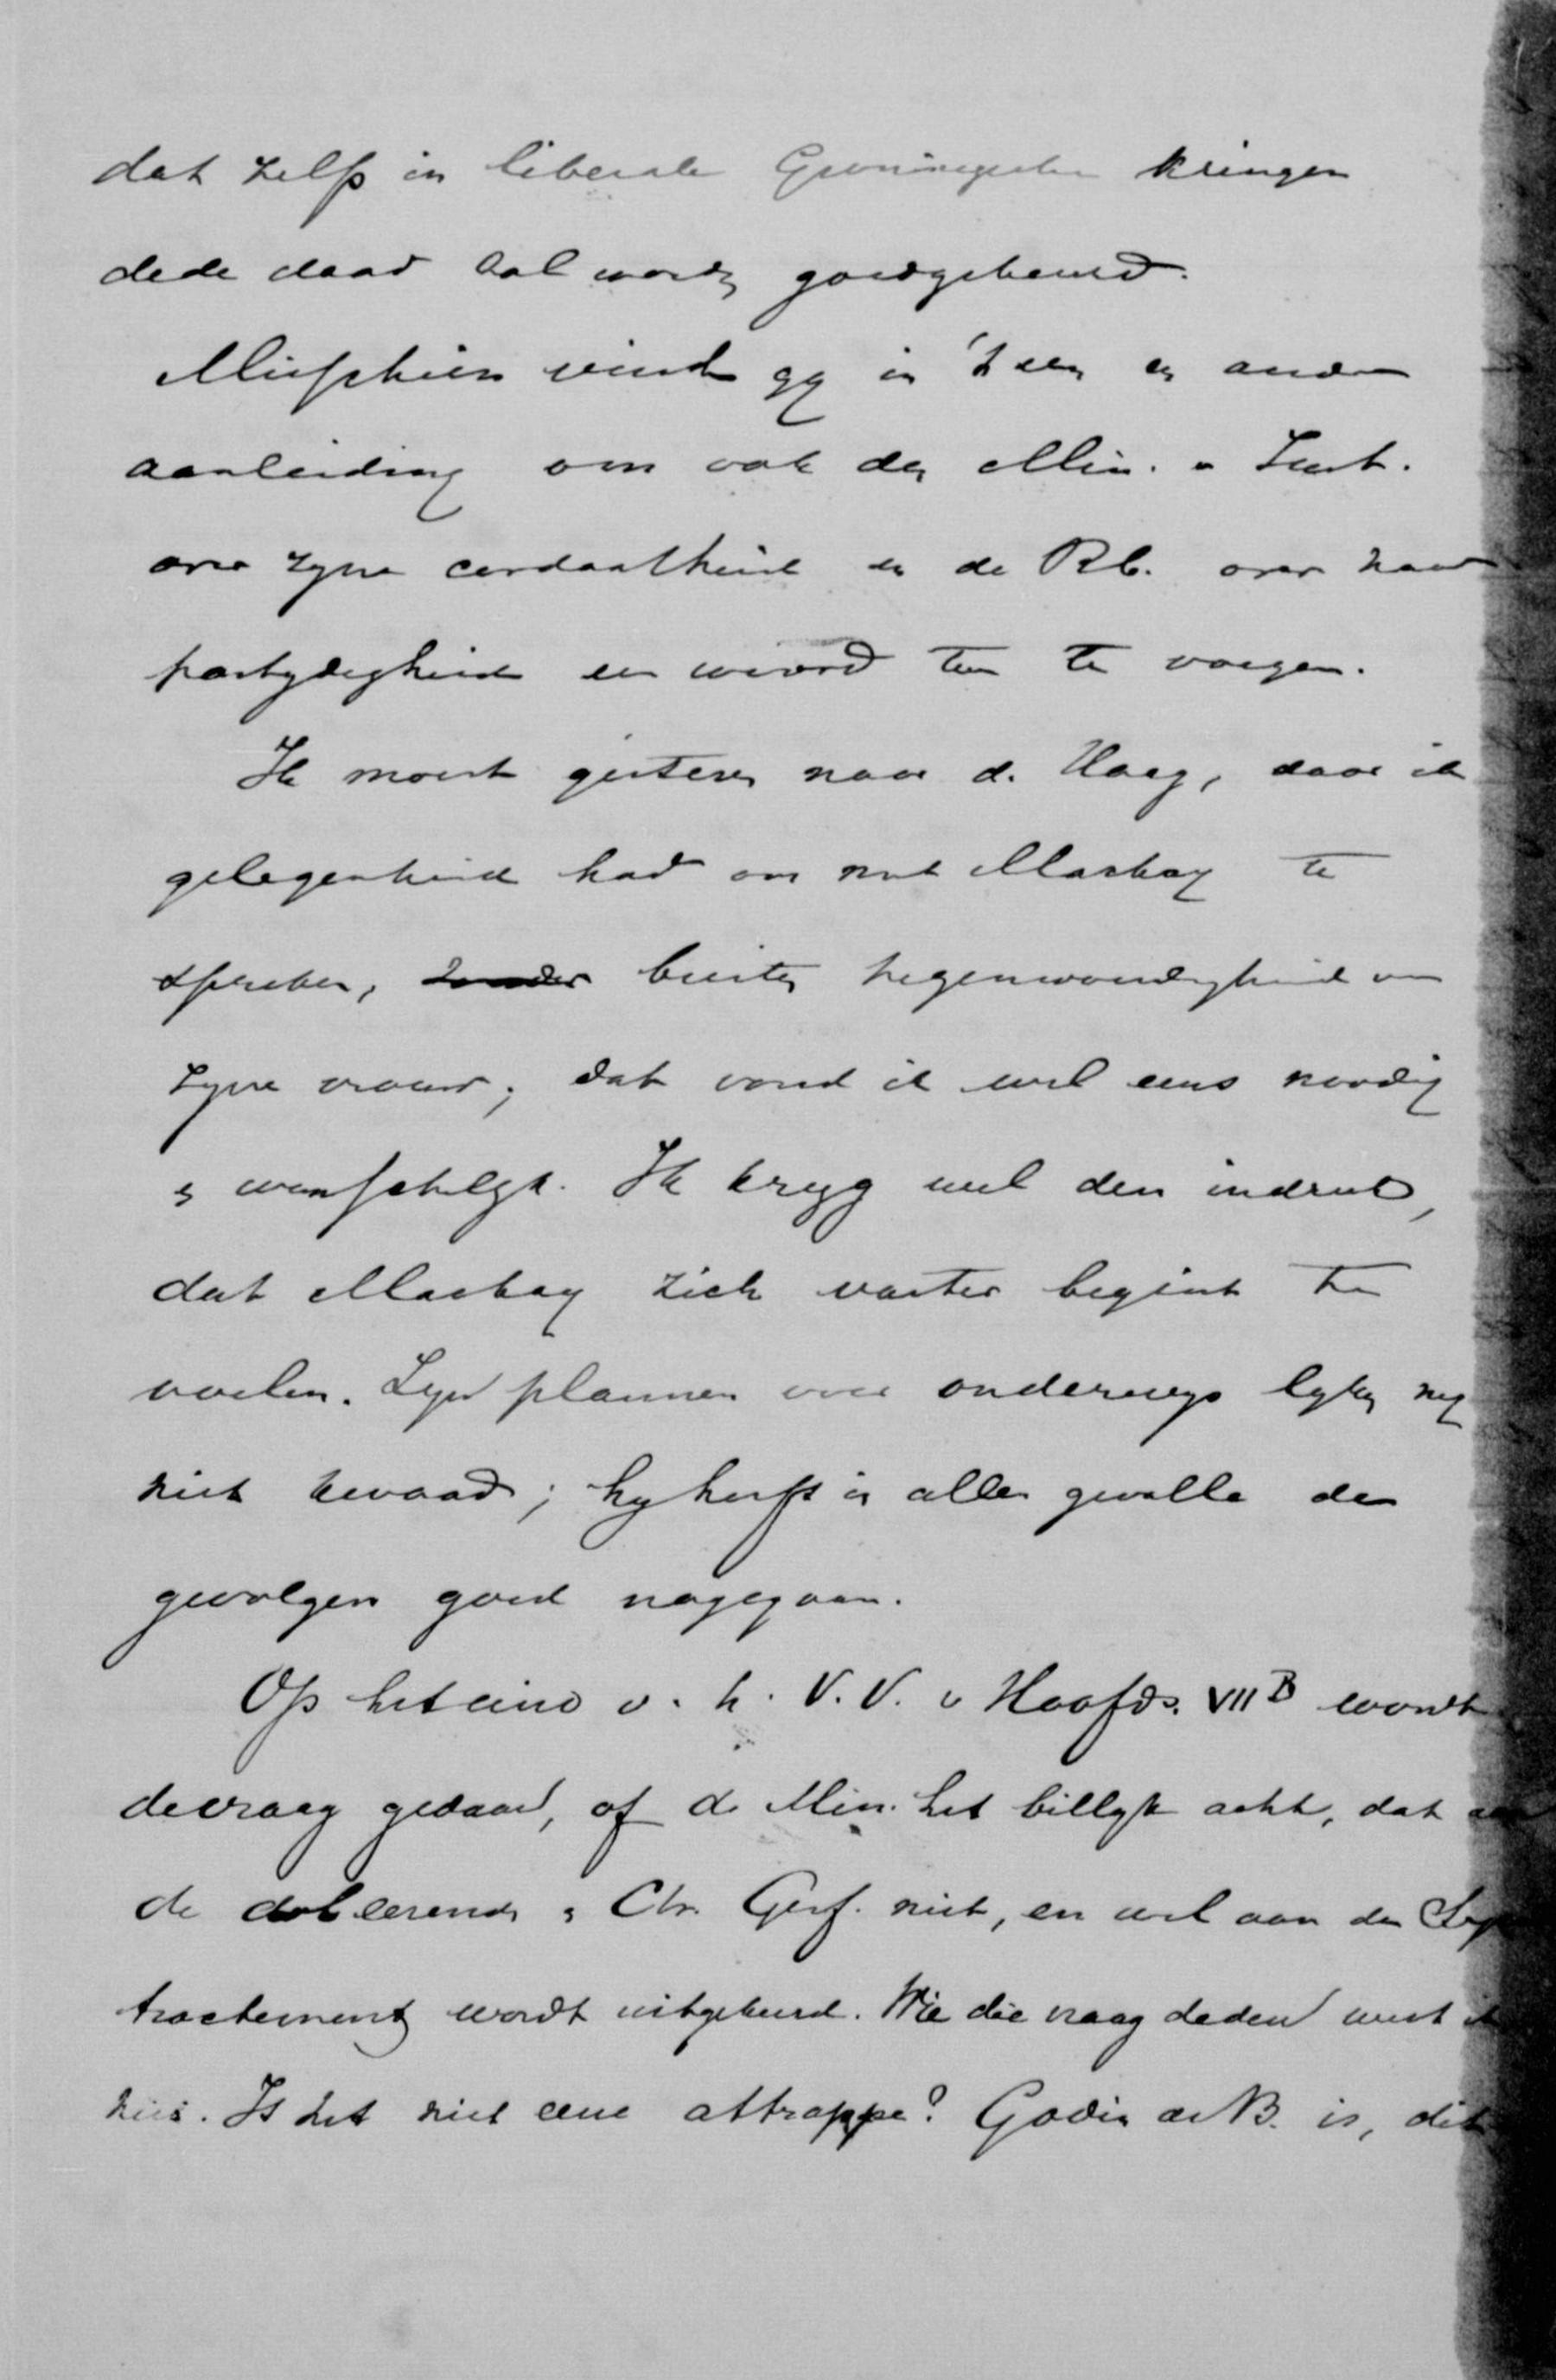 dat zelfs in liberale Groningsche kringen
deze daad zal worden goedgekeurd.
Misschien vindt gij in 't een en ander
aanleiding om ook den Min. v Just.
over zijne cordaatheid en de Rb. over haar
partijdigheid een woord toe te voegen.
Ik moest gisteren naar d. Haag, daar ik
gelegenheid had om met Mackay te
spreken, zonder buiten tegenwoordigheid van
zijne vrouw; dat vond ik wel eens noodig
en wenschelijk. Ik kryg wel den indruk,
dat Mackay zich vaster begint te
voelen. Zijn plannen over onderwijs lijken mij
niet kwaad; hij heeft in allen gevalle de
gevolgen goed nagegaan.
Op het eind v. h. V.V. v Hoofds. VIIB wordt
de vraag gedaan, of de Min. het billijk acht, dat aan
de doleerenden en Chr. Geref. niet, en wel aan de
tractement wordt uitgekeerd. Wie die vraag deden weet ik
niet. Is het niet eene attrappe? Godin de B. is, dit